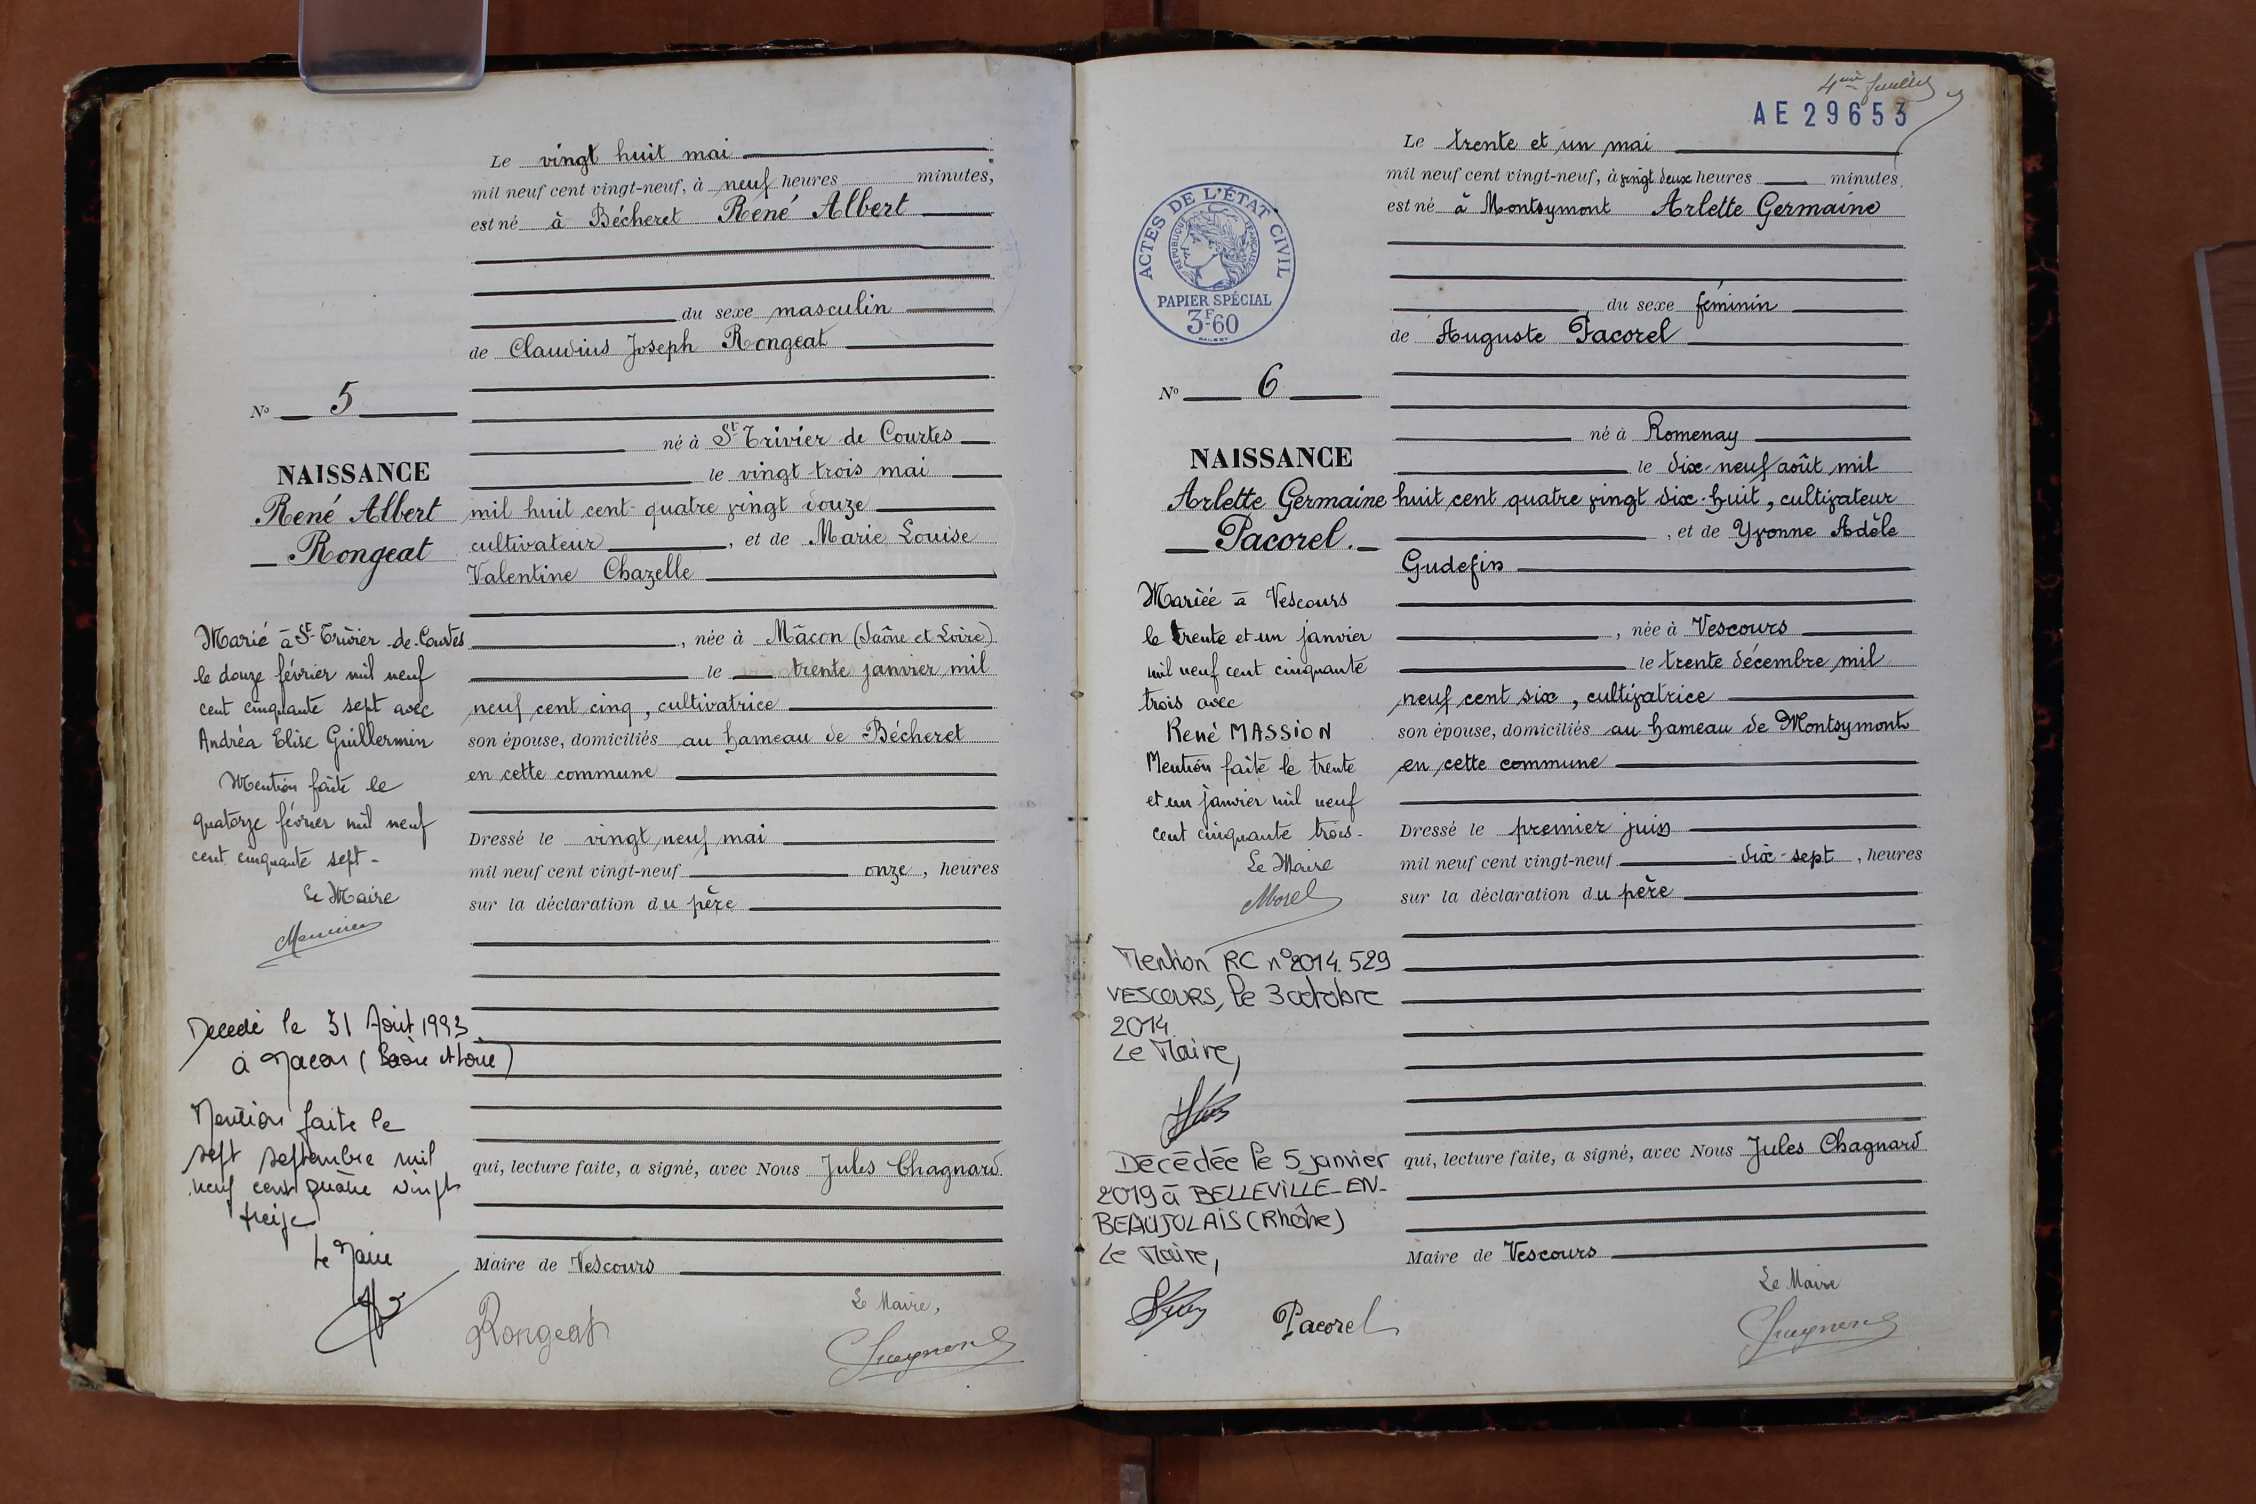 Le vingt huit mai
mil neuf cent vingt-neuf, à neuf heures minutes,
est né à Bécheret René Albert
du sexe masculin
de Claudius Joseph Rongeat
né à St Trivier de Courtes
le vingt trois mai
mil huit cent quatre vingt douze
cultivateur, et de Marie Louise
Valentine Chazelle
, née à Mâcon (Saône et Loire)
le trente janvier mil
neuf cent cinq, cultivatrice
son épouse, domiciliés au hameau de Bécheret
en cette commune
Dressé le vingt neuf mai
mil neuf cent vingt-neuf onze, heures
sur la déclaration du père
qui, lecture faite, a signé, avec Nous Jules Chagnard
Maire de Vescours
Rongeat
Le Maire,
No 5
NAISSANCE
René Albert
Rongeat
Marié à St-Trivier-de-Courtes
le douze février mil neuf
cent cinquante sept avec
Andréa Elise Guillermin
Mention faite le
quatorze février mil neuf
cent cinquante sept-
Le Maire
Décédé le 31 Août 1993
à Macon (Saône et Loire)
Mention faite le
sept septembre mil
neuf cent quatre vingt
treize
Le Maire
4me feuillet
AE 29653
ACTES DE L'ÉTAT CIVIL
RÉPUBLIQUE FRANÇAISE
PAPIER SPÉCIAL
3F-60
Le trente et un mai
mil neuf cent vingt-neuf, à vingt deux heures minutes,
est né à Montsymont Arlette Germaine
du sexe féminin
de Auguste Pacorel
né à Romenay
le dix-neuf août mil
huit cent quatre vingt dix-huit, cultivateur
, et de Yvonne Adèle
Gudefin
, née à Vescours
le trente décembre mil
neuf cent six, cultivatrice
son épouse, domiciliés au hameau de Montsymont
en cette commune
Dressé le premier juin
mil neuf cent vingt-neuf dix-sept, heures
sur la déclaration du père
qui, lecture faite, a signé, avec Nous Jules Chagnard
Maire de Vescours
Le Maire
No 6
NAISSANCE
Arlette Germaine
Pacorel.
Mariée à Vescours
le trente et un janvier
mil neuf cent cinquante
trois avec
René MASSION
Mention faite le trente
et un janvier mil neuf
cent cinquante trois-
Le Maire
Morel
Mention RC n°2014.529
VESCOURS, le 3 octobre
2014
Le Maire,
Décédée le 5 janvier
2019 à BELLEVILLE-EN-
BEAUJOLAIS (Rhône)
Le Maire,
Pacorel